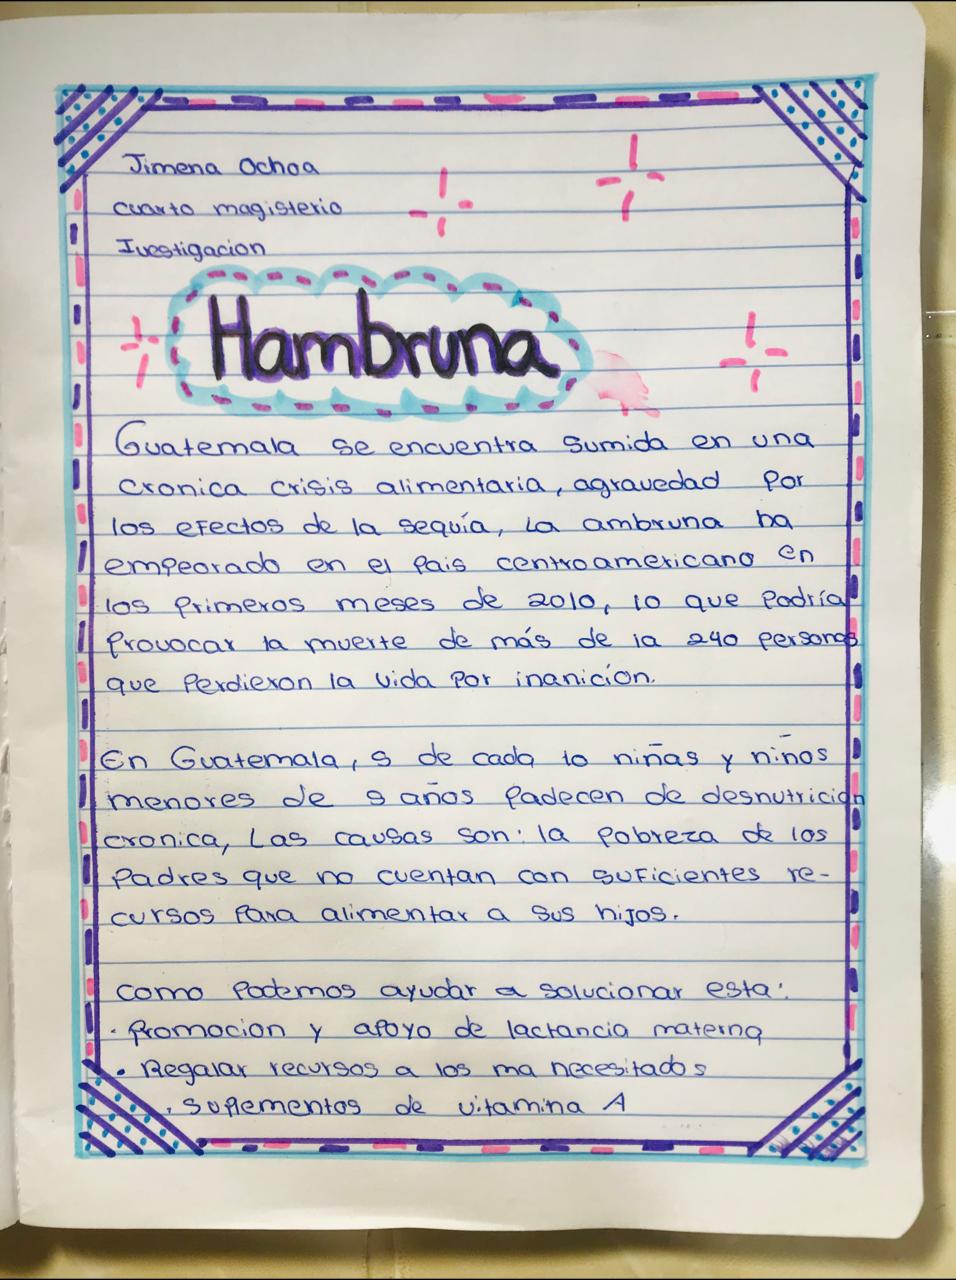 Jimena Ochoa
cuarto magisterio
Ivestigacion
Hambruna
Guatemala se encuentra sumida en una
cronica crisis alimentaria, agravedad por
los efectos de la sequía, La ambruna ha
empeorado en el pais centroamericano en
los primeros meses de 2010, lo que podría
provocar la muerte de más de la 240 personas
que perdieron la vida por inanición.
En Guatemala, 5 de cada 10 niñas y niños
menores de 5 años padecen de desnutrición
cronica, Las causas son: la pobreza de los
padres que no cuentan con suficientes re-
cursos para alimentar a sus hijos.
como podemos ayudar a solucionar esta:
· promocion y apoyo de lactancia materna
• Regalar recursos a los ma necesitados
. suplementos de vitamina A